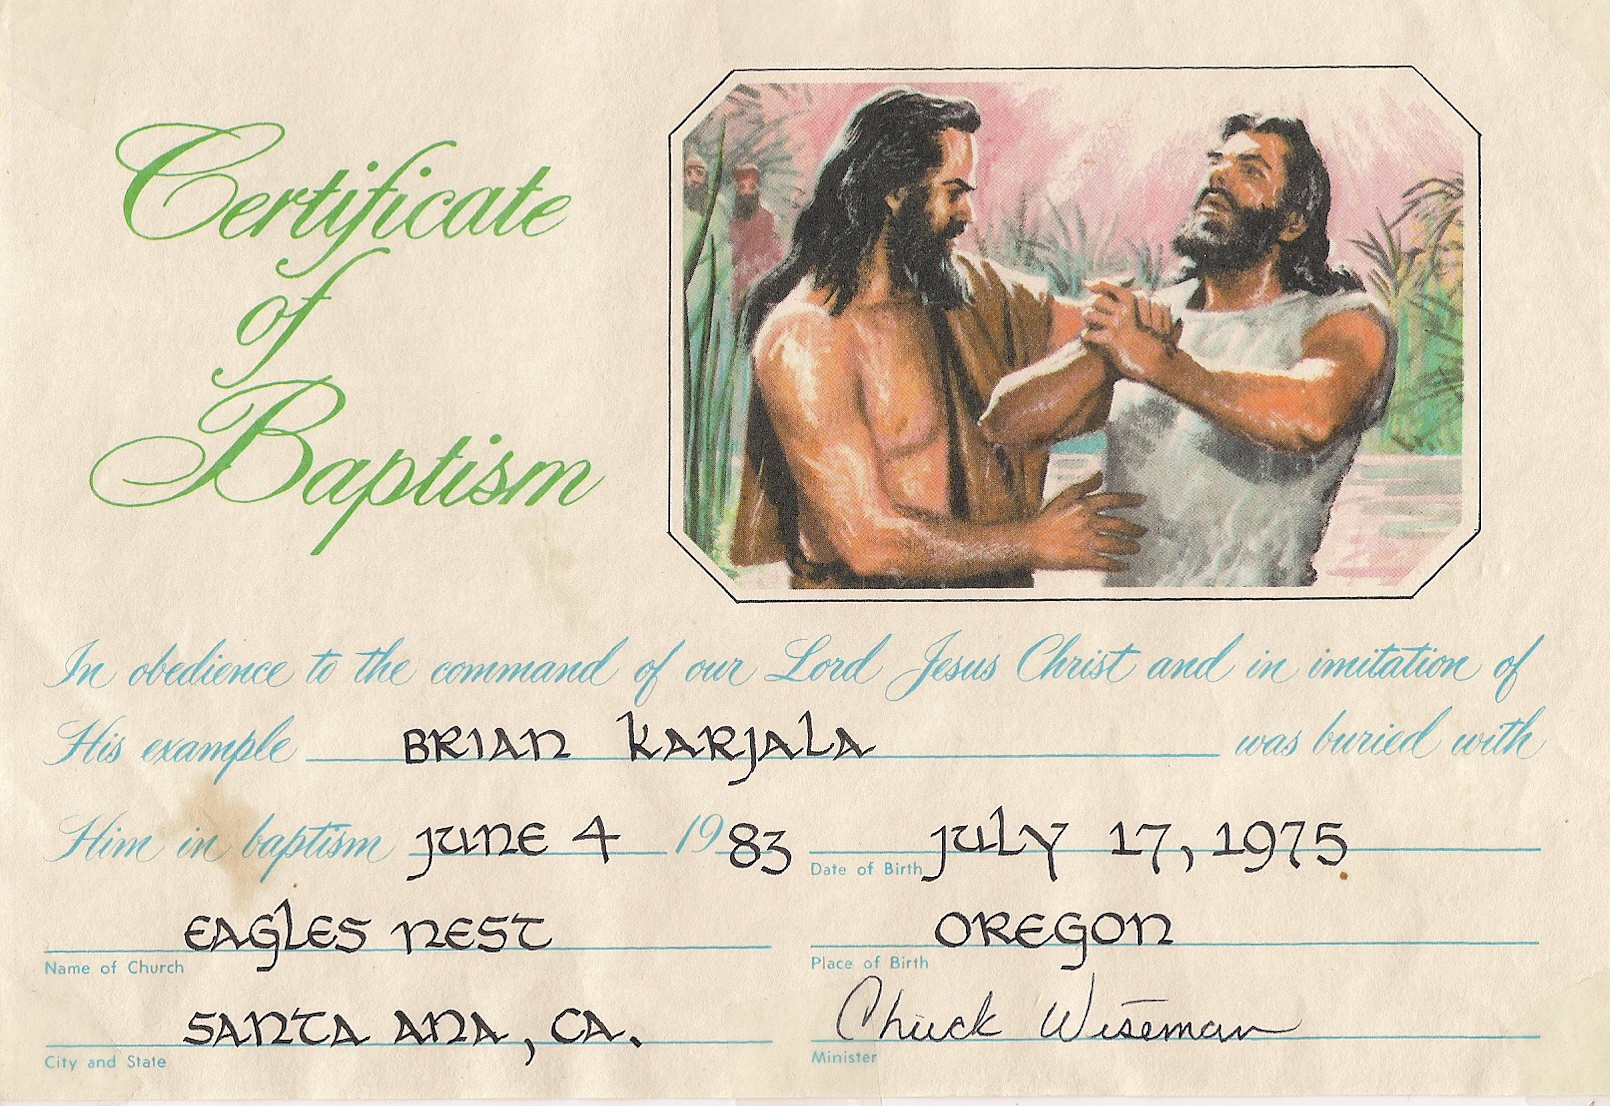 Certificate
of
Baptism
In obedience to the command of our Lord Jesus Christ and in imitation of
His example BRIAN KARJALA was buried with
Him in baptism JUNE 4 1983 JULY 17, 1975
Date of Birth
EAGLES NEST OREGON
Name of Church Place of Birth
SANTA ANA, CA. Chuck Wiseman
City and State Minister